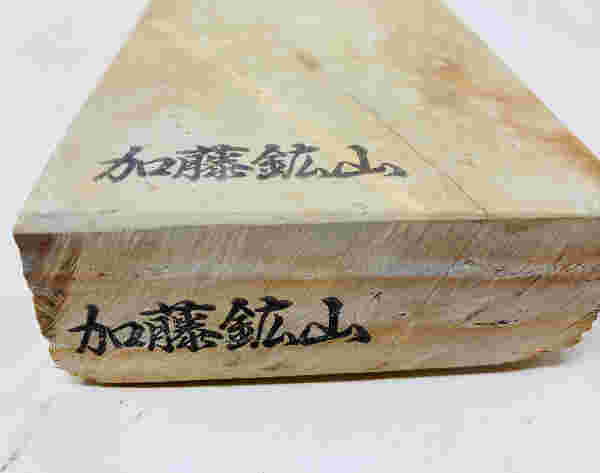 加藤鉱山
加藤鉱山